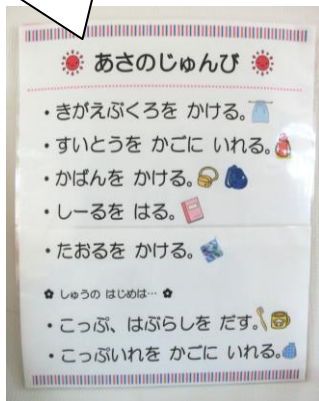 あさのじゅんび
・きがえぶくろを かける。
・すいとうを かごに いれる。
・かばんを かける。
・しーるを はる。
・たおるを かける。
✿ しゅうの はじめは… ✿
・こっぷ、はぶらしを だす。
・こっぷいれを かごに いれる。